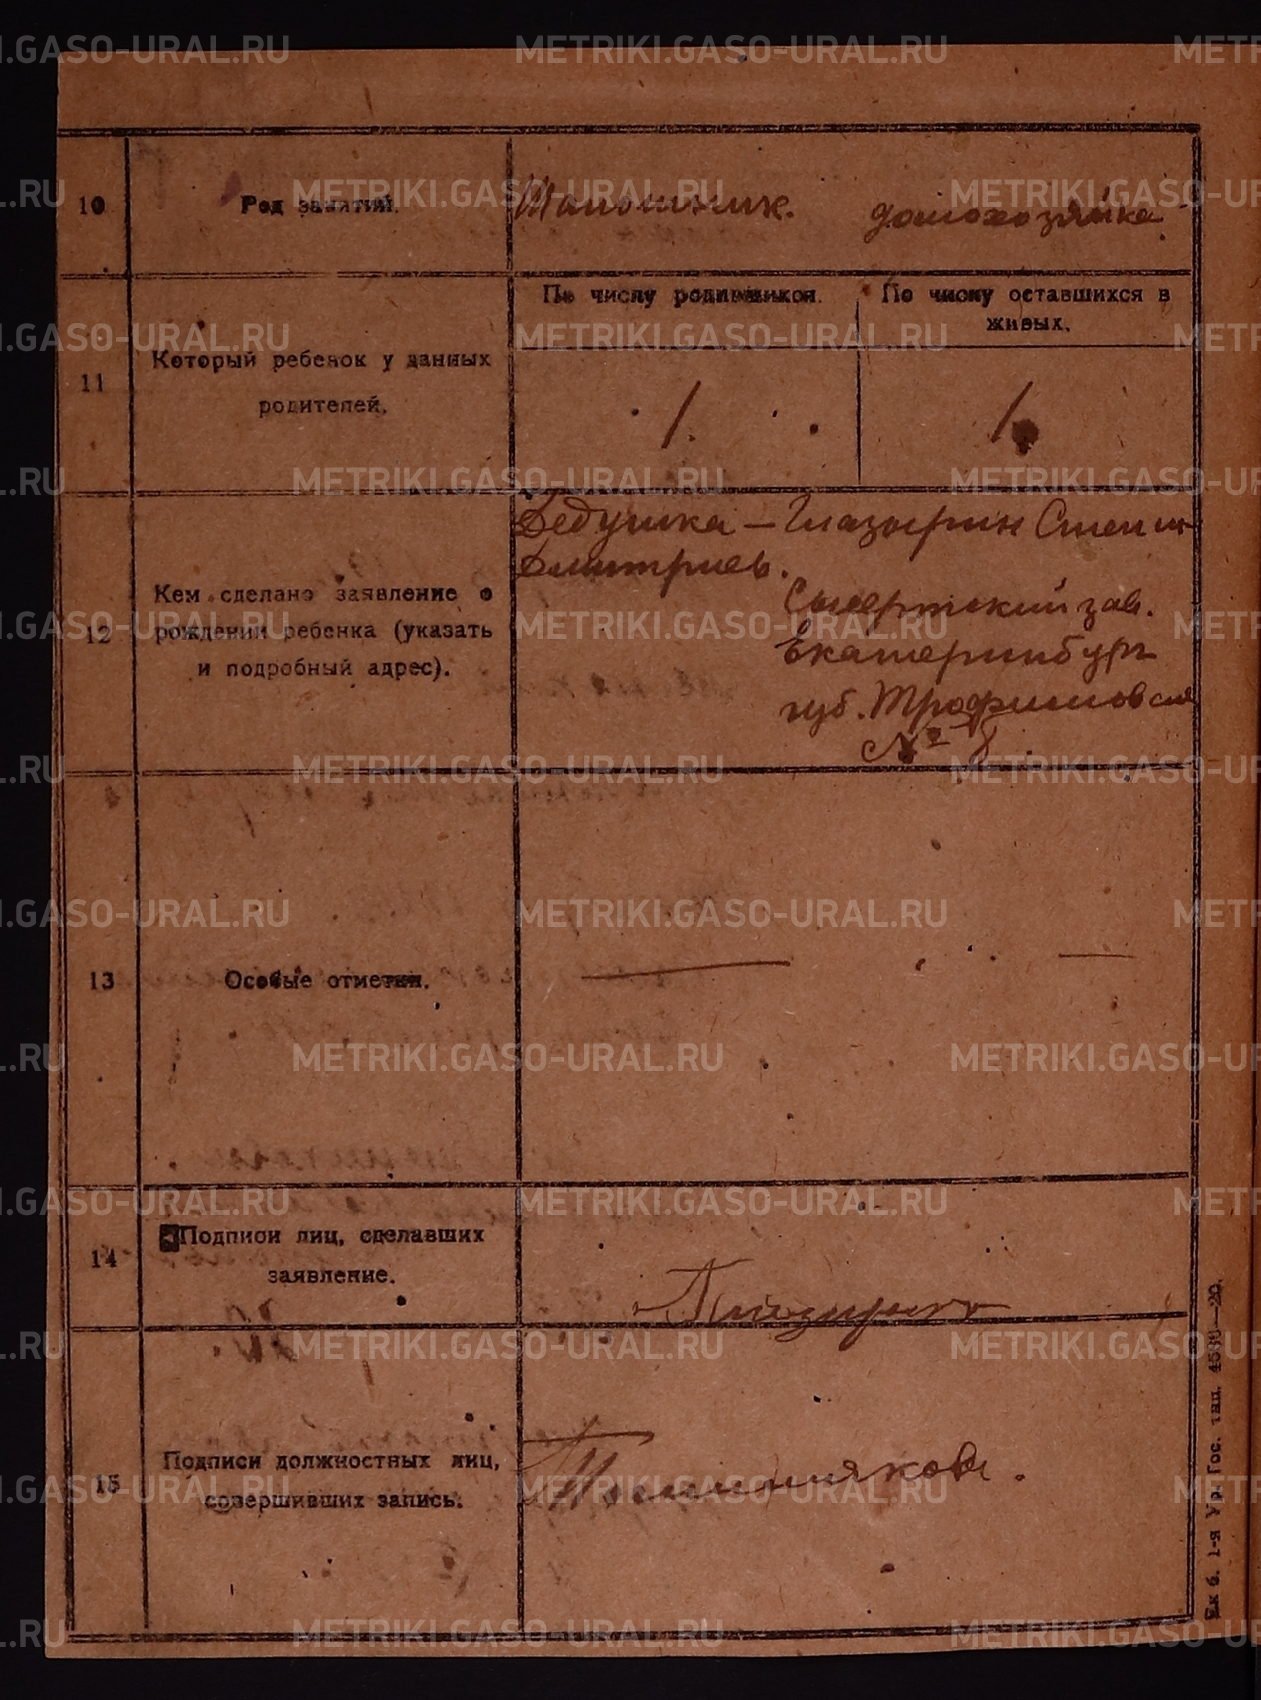 10
Род занятий.
домохозяйка
По числу родившихся.
По числу оставшихся в
живых.
11
Который ребенок у данных
родителей.
1.
1.
12
Кем сделано заявление о
рождении ребенка (указать
и подробный адрес).
Дедушка — Глазырин Степан
Дмитриев.
Сысертский зав.
Екатеринбург
губ. Трофимовская
№ 8.
13
Особые отметки.
14
Подписи лиц, сделавших
заявление.
Глазырин
15
Подписи должностных лиц,
совершивших запись.
Ек б. 1-я Ур. Гос. тип. 4530—20.
METRIKI.GASO-URAL.RU